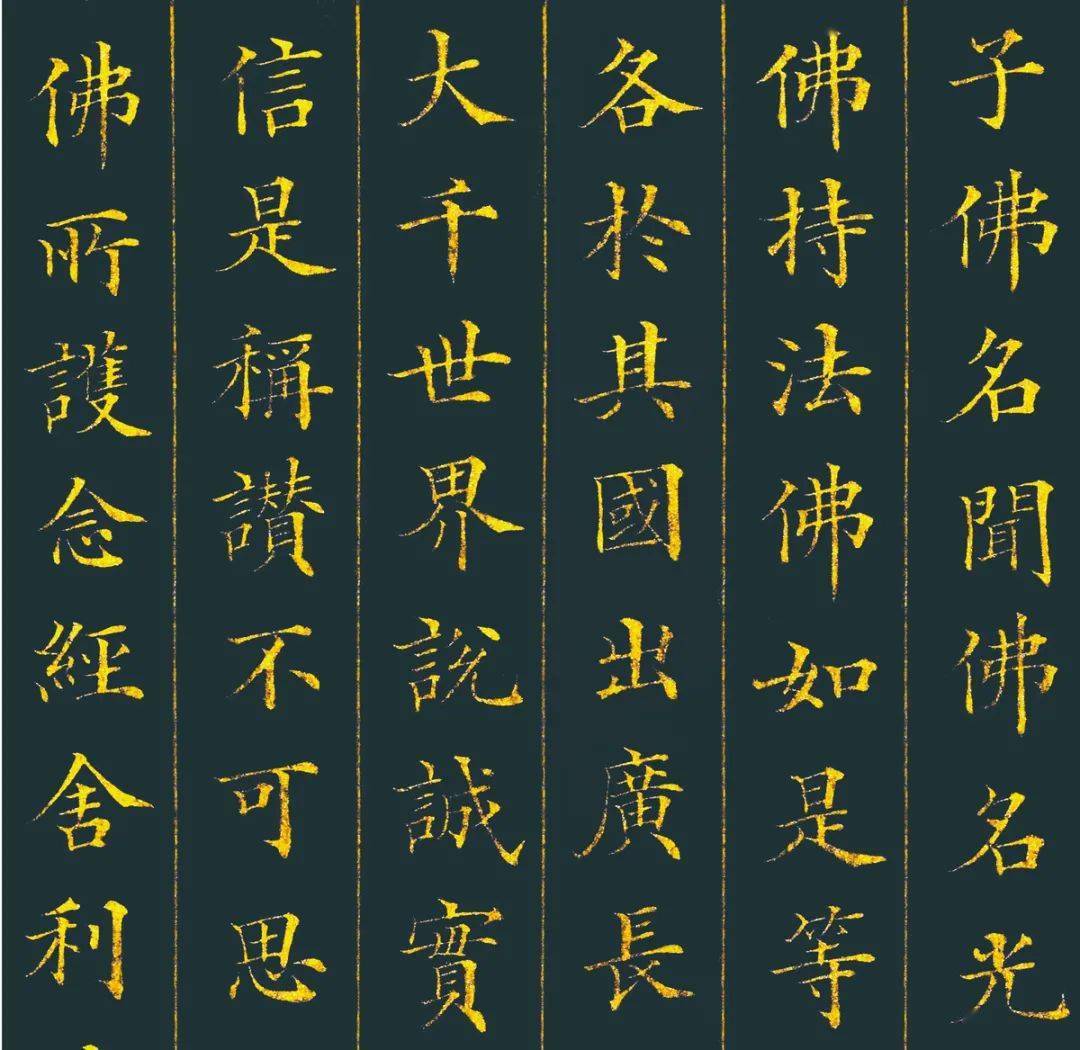 子佛名聞佛名光
佛持法佛如是等
各於其國出廣長
大千世界說誠實
信是稱讚不可思
佛所護念經舍利